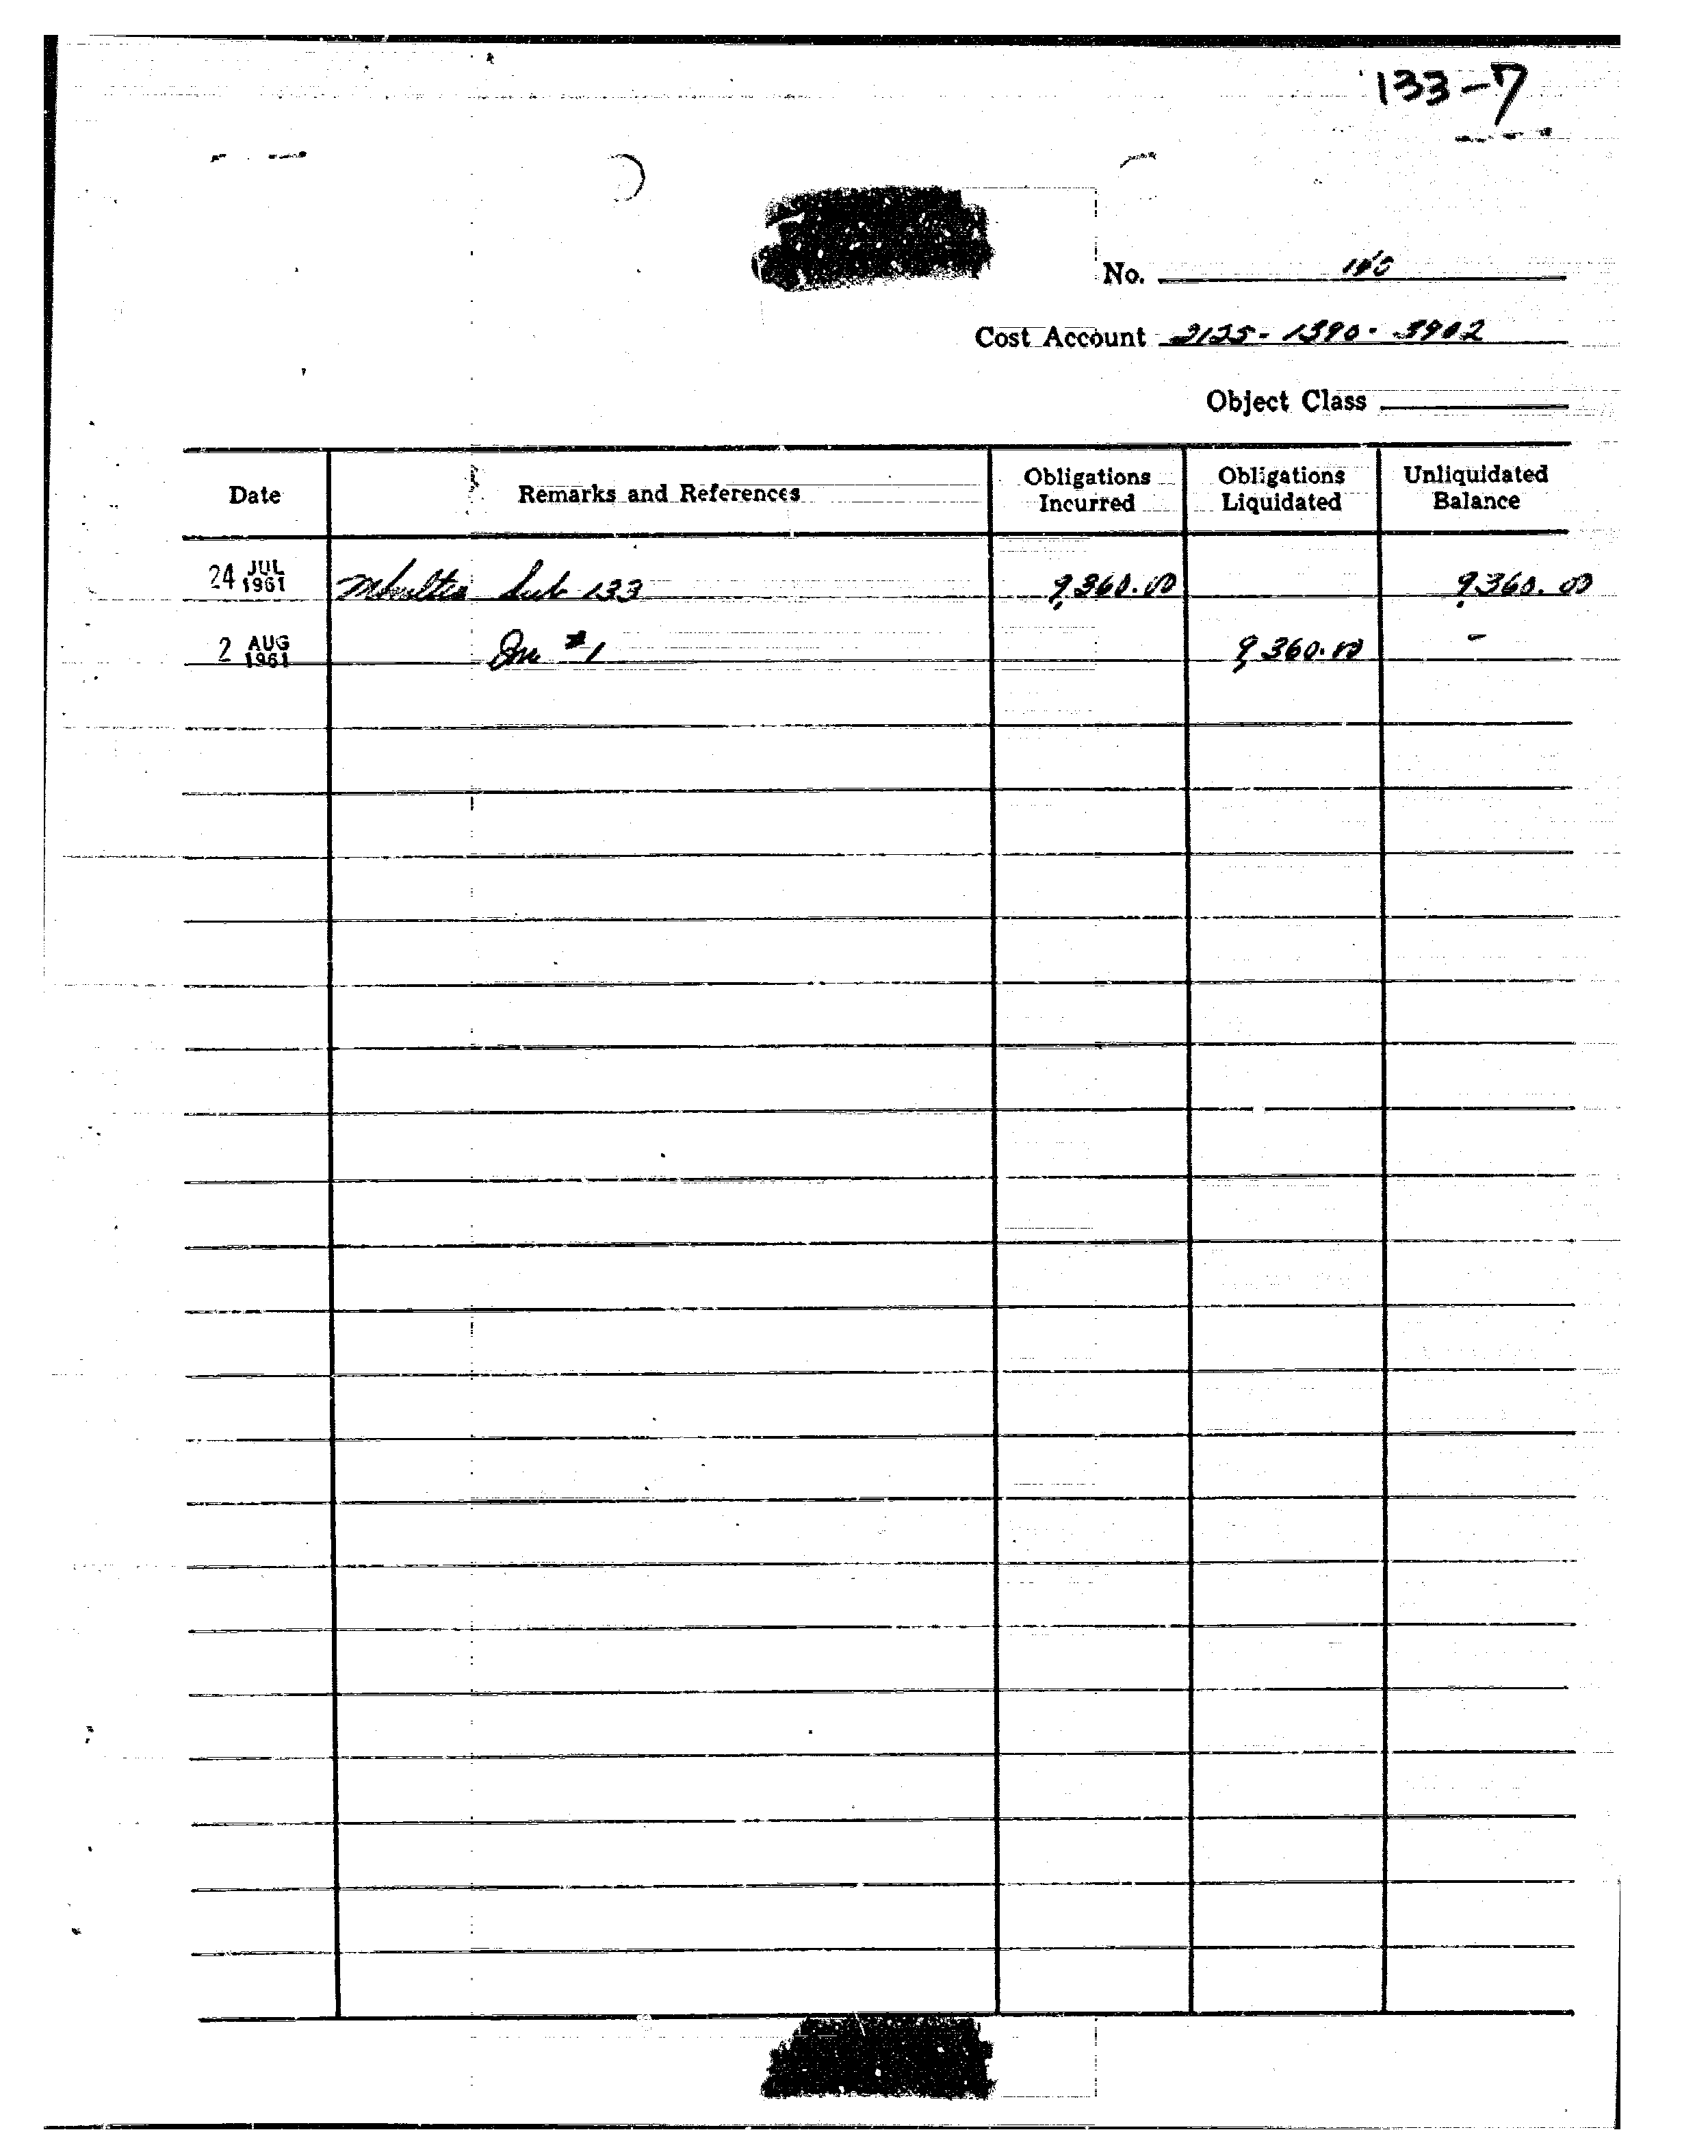 133-7
No. 140
Cost Account 2125-1390-3902
Object Class
Date Remarks and References Obligations Incurred Obligations Liquidated Unliquidated Balance
24 JUL 1961 Mkultra Sub 133 9,360.00 9,360.00
2 AUG 1961 Inv #1 9,360.00 -